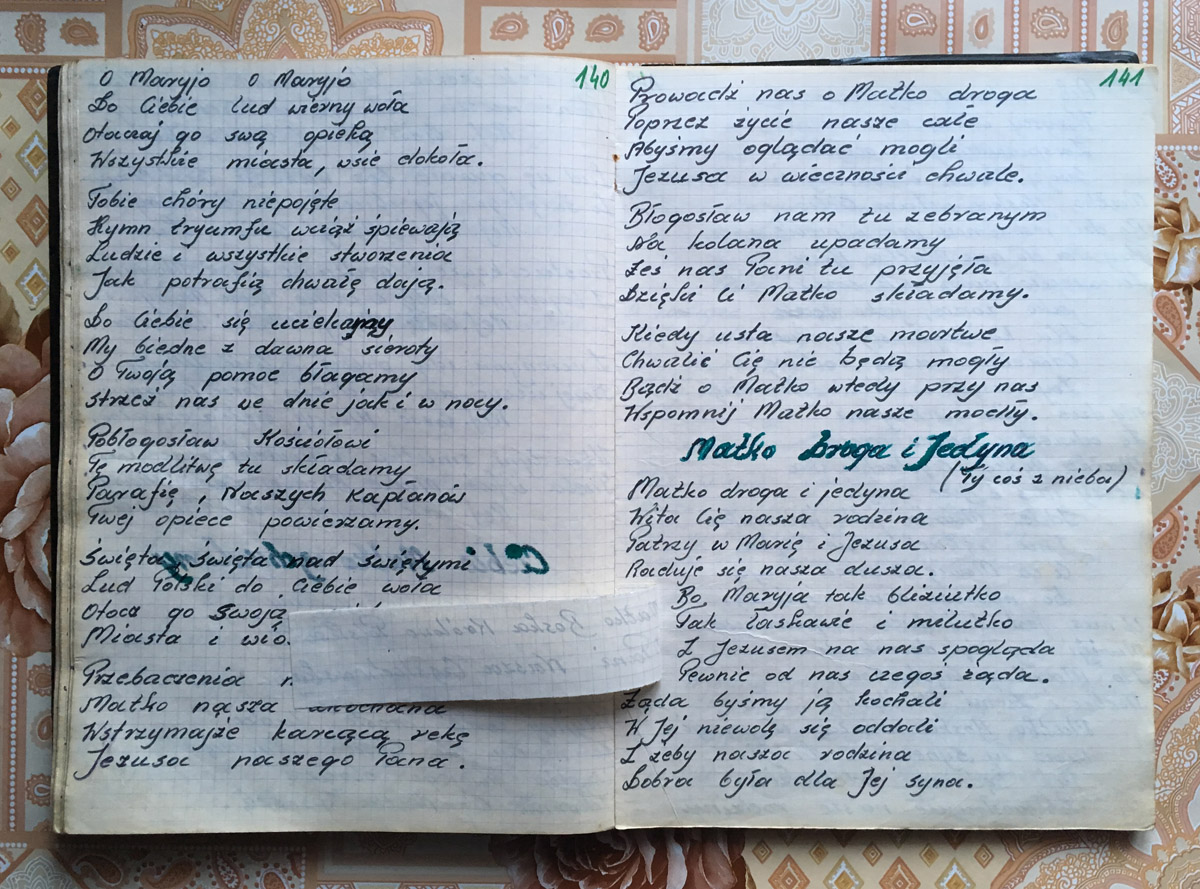 140
O Maryjo O Maryjo
Do Ciebie lud wierny woła
Otaczaj go swą opieką
Wszystkie miasta, wsie dokoła.
Tobie chóry niepojęte
Hymn tryumfu wciąż śpiewają
Ludzie i wszystkie stworzenia
Jak potrafią chwałę dają.
Do Ciebie się uciekajmy
My biedne z dawna sieroty
O Twoją pomoc błagamy
strzeż nas we dnie jak i w nocy.
Pobłogosław Kościołowi
Tę modlitwę tu składamy
Parafię, Naszych Kapłanów
Twej opiece powierzamy.
Święta, Święta nad Świętymi
Lud Polski do Ciebie woła
Otocz go swoją
Miasta i
Przebaczenia
Matko nasza ukochana
Wstrzymajże karcącą rękę
Jezusa naszego Pana.
Matko Boska
141
Prowadź nas o Matko droga
Poprzez życie nasze całe
Abyśmy oglądać mogli
Jezusa w wieczności chwale.
Błogosław nam tu zebranym
Na kolana upadamy
Żeś nas Pani tu przyjęła
Dzięki Ci Matko składamy.
Kiedy usta nasze martwe
Chwalić Cię nie będą mogły
Bądź o Matko wtedy przy nas
Wspomnij Matko nasze modły.
Matko Droga i Jedyna
(Ty coś z nieba)
Matko droga i jedyna
Wita Cię nasza rodzina
Patrzy w Marię i Jezusa
Raduje się nasza dusza.
Bo Maryja tak bliziutko
Tak łaskawie i milutko
Z Jezusem na nas spogląda
Pewnie od nas czegoś żąda.
Żąda byśmy ją kochali
W Jej niewolę się oddali
I żeby nasza rodzina
Dobra była dla Jej syna.